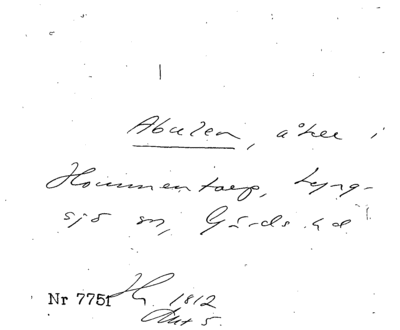 Abulen, åker i
Hommentorp, Lyng-
sjö sn, Gärds hd
Nr 7751 1812
Akt 5.